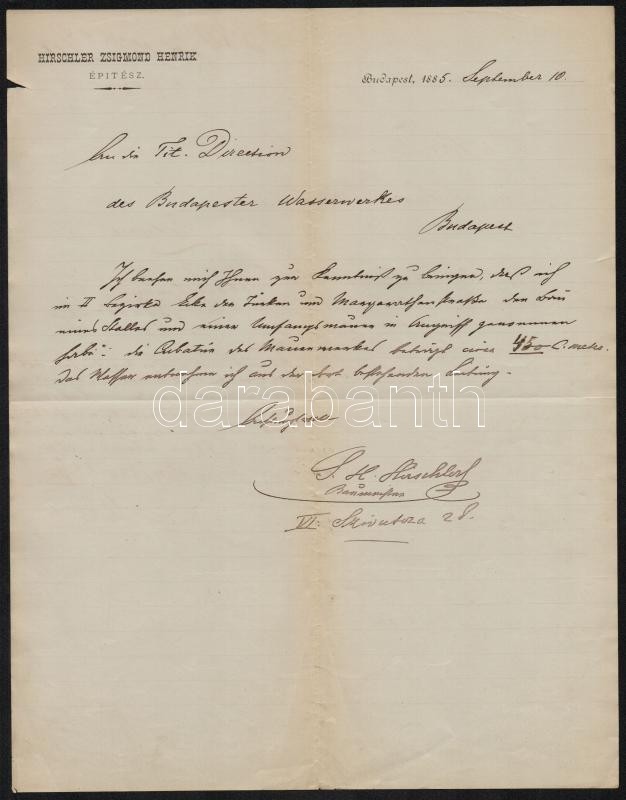 HIRSCHLER ZSIGMOND HENRIK
ÉPITÉSZ.
Budapest, 1885. September 10.
An die Tit. Direction
des Budapester Wasserwerkes
Budapest
Ich beehre mich Ihnen zur Kenntniß zu bringen, daß ich
im II Bezirke Ecke der Türken und Margarethenstraße den Bau
eines Stalles und einer Umfangsmauer in Angriff genommen
habe: die Cubatur des Mauerwerkes beträgt circa 450 C. meter.
das Wasser entnehme ich aus der dort bestehenden Leitung.
darabanth
Achtungsvoll
S. H. Hirschler
Baumeister
VI: Szív utcza 28.